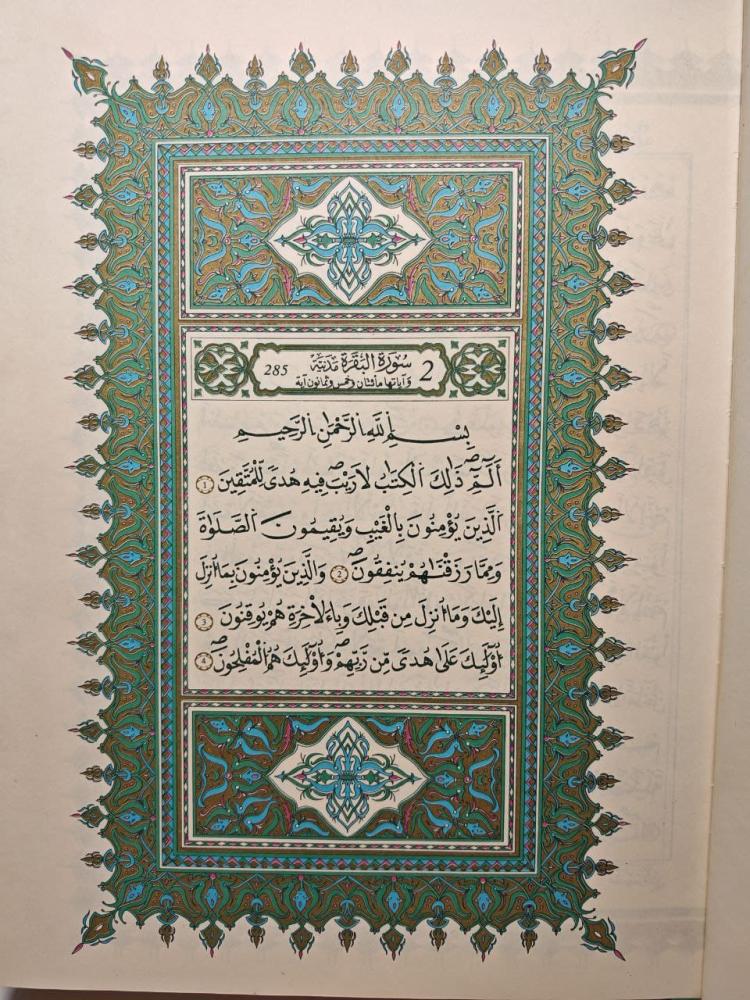 2 سُورَة البَقَرَة مَدَنِيَّة 285
وَآيَاتها مائتان وخمس وثمانون آية
بِسْمِ اِ۬للَّهِ اِ۬لرَّحْمَٰنِ اِ۬لرَّحِيمِ
أَلَٓمِّٓۖ ذَٰلِكَ اَ۬لْكِتَٰبُ لَا رَيْبَۖ فِيهِ هُدىً لِّلْمُتَّقِينَ 1
اَ۬لذِينَ يُؤْمِنُونَ بِالْغَيْبِ وَيُقِيمُونَ اَ۬لصَّلَوٰةَ
وَمِمَّا رَزَقْنَٰهُمْ يُنفِقُونَۖ 2 وَالذِينَ يُؤْمِنُونَ بِمَا أُنزِلَ
إِلَيْكَ وَمَا أُنزِلَ مِن قَبْلِكَ وَبِالَاخِرَةِ هُمْ يُوقِنُونَ 3
أُوْلَٰٓئِكَ عَلَىٰ هُدىً مِّن رَّبِّهِمْۖ وَأُوْلَٰٓئِكَ هُمُ اُ۬لْمُفْلِحُونَۖ 4